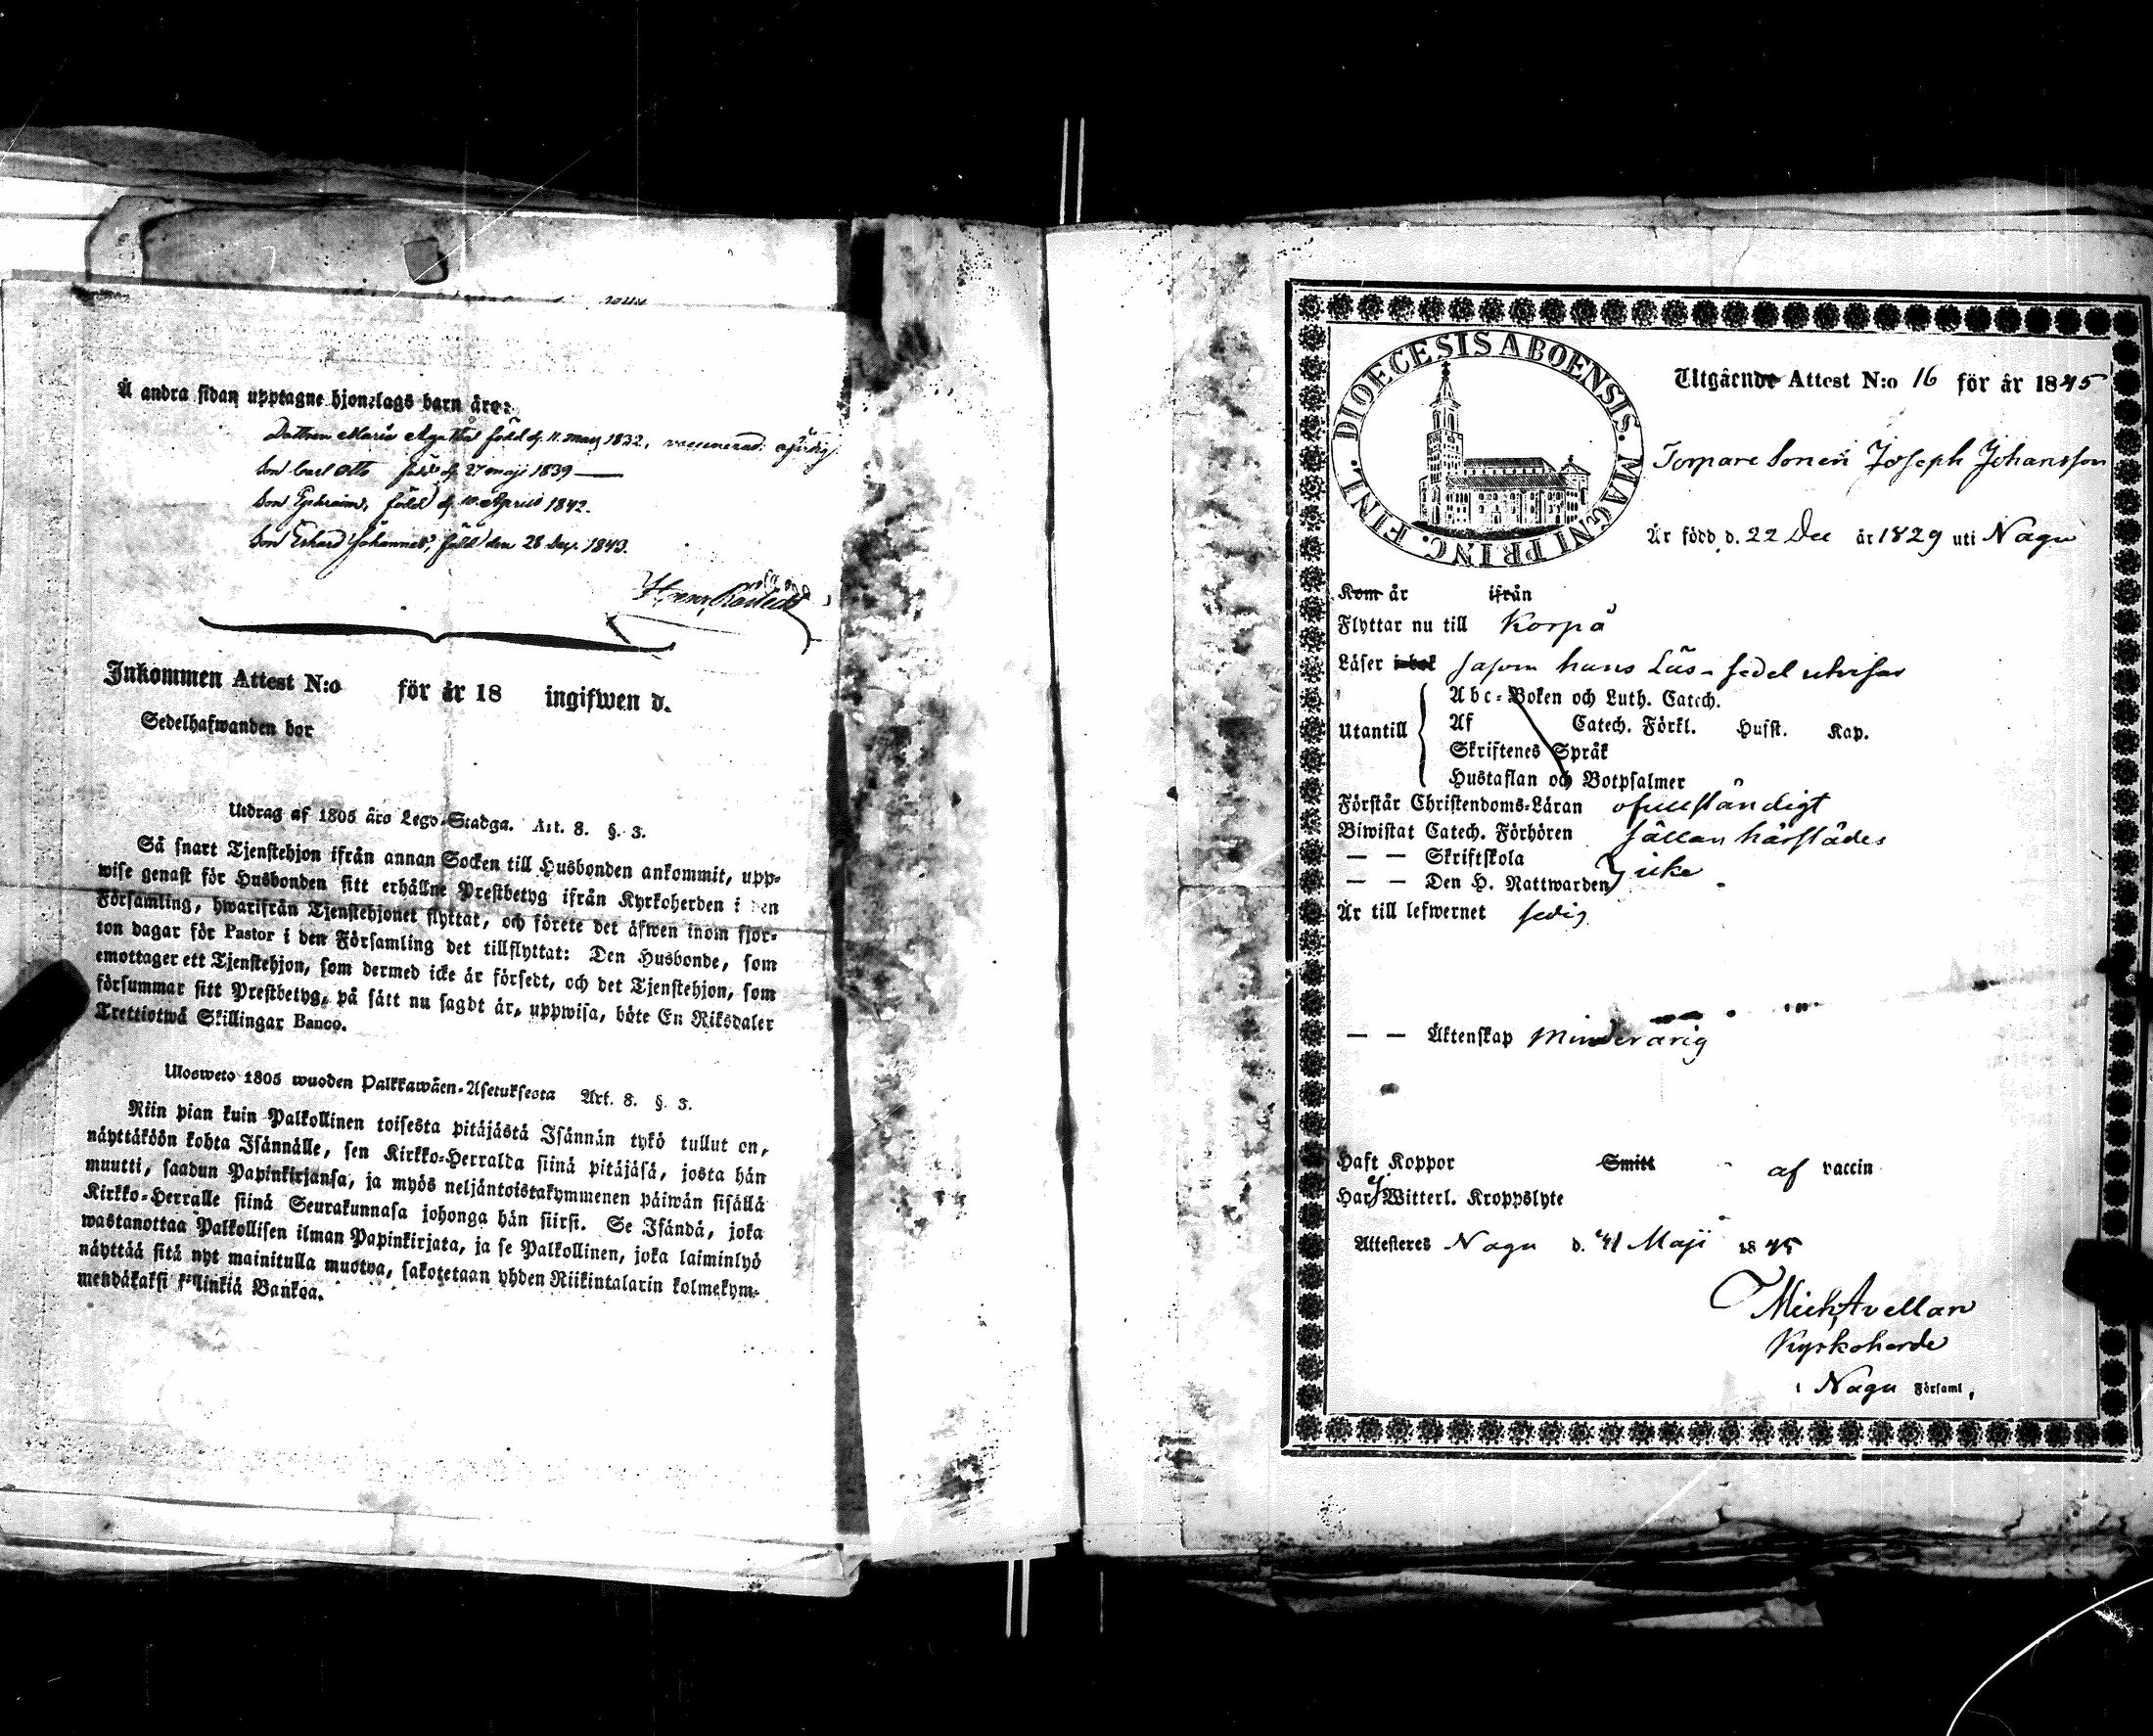 Å andra sidan upptagne hjonelags barn äro:
Dottren Maria Agatha född d. 11. may 1832, vaccinerad
Son Carl Otto född d. 27 maji 1839
Son Ephraim, född d. 10 Aprill 1842.
Son Erhard Johannes, född den 28 1843.
Inkommen Attest N:o för år 18 ingifwen d.
Sedelhafwanden bor
Utdrag af 1805 års Lego-Stadga. Art. 8. §. 3.
Så snart Tjenstehjon ifrån annan Socken till Husbonden ankommit, upp-
wise genast för Husbonden sitt erhållne Prestbetyg ifrån Kyrkoherden i den
Församling, hwarifrån Tjenstehjonet flyttat, och förete det äfwen inom fjor-
ton dagar för Pastor i den Församling det tillflyttat: Den Husbonde, som
emottager ett Tjenstehjon, som dermed icke är försedt, och det Tjenstehjon, som
försummar sitt Prestbetyg, på sätt nu sagdt är, uppwisa, böte En Riksdaler
Trettiotwå Skillingar Banco.
Ulosweto 1805 wuoden Palkkawäen-Asetuksesta Art. 8. §. 3.
Niin pian kuin Palkollinen toisesta pitäjästä Isännän tykö tullut on,
näyttäköön kohta Isännälle, sen Kirkko-Herralda siinä pitäjäsä, josta hän
muutti, saadun Papinkirjansa, ja myös neljäntoistakymmenen päiwän sisällä
Kirkko-Herralle siinä Seurakunnasa johonga hän siirsi. Se Isändä, joka
wastanottaa Palkollisen ilman Papinkirjata, ja se Palkollinen, joka laiminlyö
näyttää sitä nyt mainitulla muotoa, sakotetaan yhden Riikintalarin kolmekym-
mendäkaksi killinkiä Bankoa.
DIOECESIS ABOENSIS. MAGNI PRINC. FINL.
Utgående Attest N:o 16 för år 1845
Torpare Sonen Joseph Johansson
Är född d. 22 Dec år 1829 uti Nagu
Kom år ifrån
Flyttar nu till Korpå
Läser i bok såsom hans Läs-sedel utvisar
Abc-Boken och Luth. Catech.
Utantill Af Catech. Förkl. Husst. Kap.
Skriftenes Språk
Hustaflan och Botpsalmer
Förstår Christendoms-Läran ofullständigt
Biwistat Catech. Förhören sällan härstädes
— — Skriftskola
— — Den H. Nattwarden icke
Är till lefwernet sedig
— — Äktenskap Minderårig
Haft Koppor Smitt af vaccin
Har ej Witterl. Kroppslyte
Attesteres Nagu d. Maji 1845
Mich, Avellan
Kyrkoherde
i Nagu Församl,